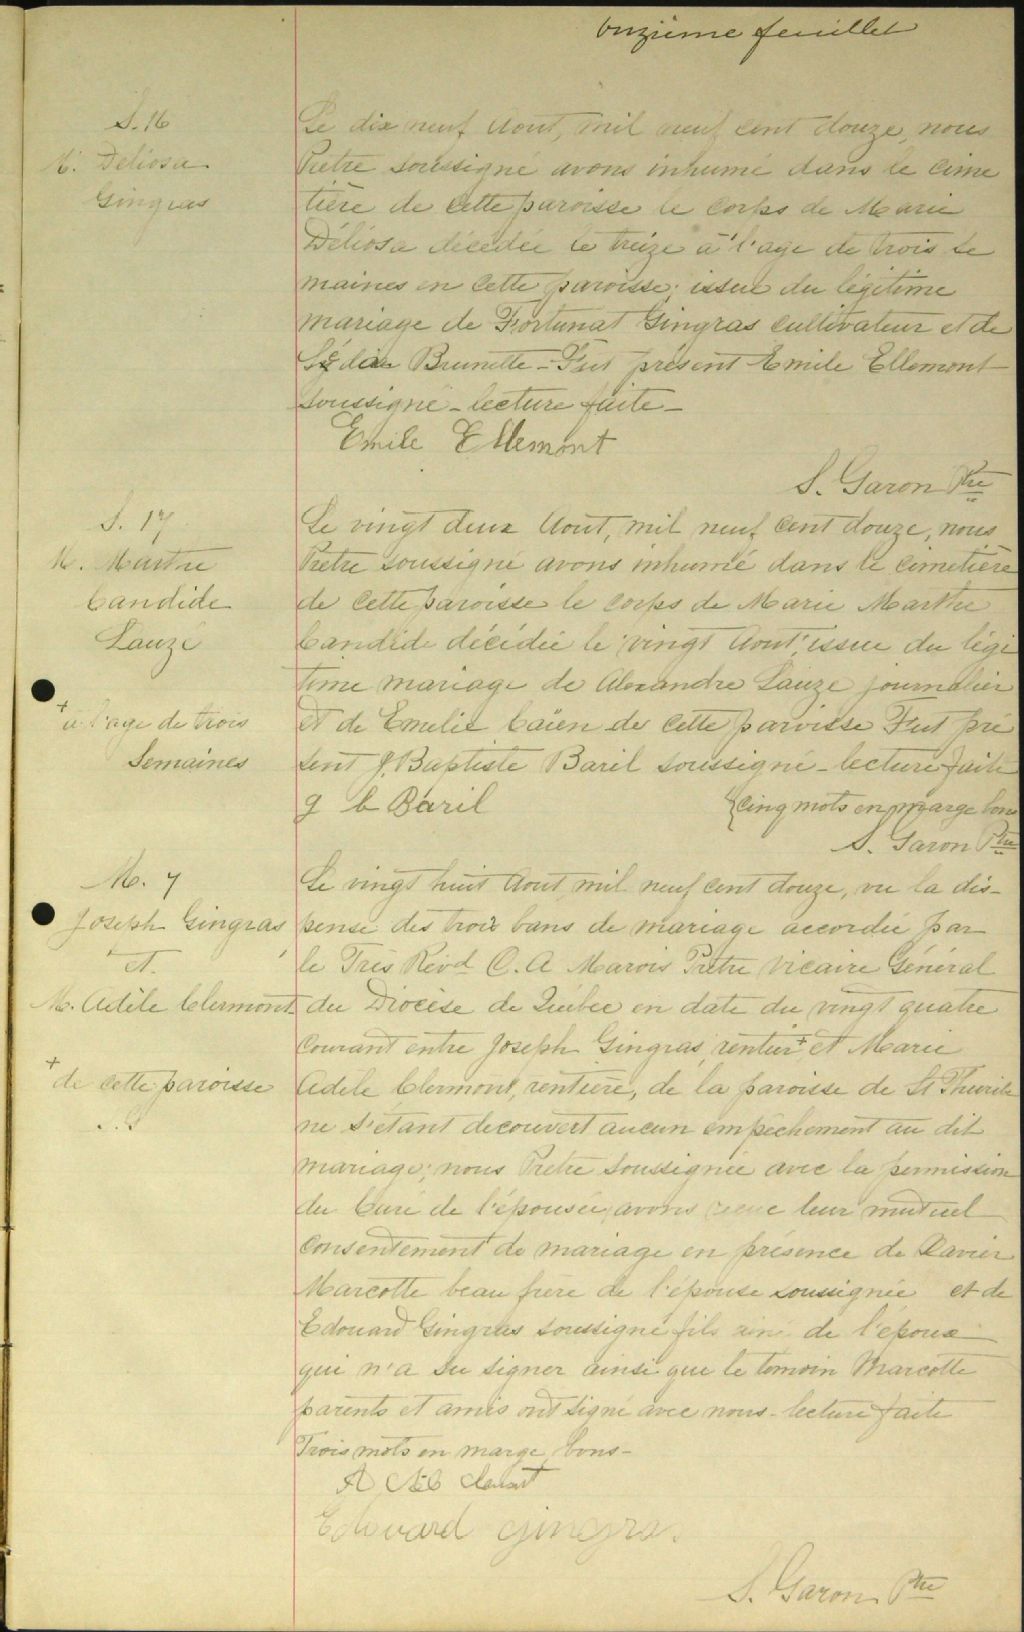 onzième feuillet
S. 16
M. Déliosa
Gingras
Le dix neuf Aout, mil neuf cent douze, nous
Prêtre soussigné avons inhumé dans le cime
tière de cette paroisse le corps de Marie
Déliosa décédée le treize à l'age de trois se
maines en cette paroisse, issue du légitime
mariage de Fortunat Gingras cultivateur et de
Brunette - Fut présent Emile Ellemont
soussigné - lecture faite -
Emile Ellemont
S. Garon Ptre
S. 17
M. Marthe
Candide
Lauzé
+
à l'age de trois
Semaines
Le vingt deux Aout, mil neuf cent douze, nous
Prêtre soussigné avons inhumé dans le cimetière
de cette paroisse le corps de Marie Marthe
Candide décédée le vingt Aout, issue du légi
time mariage de Alexandre Lauzé journalier
et de Emelie Caïen de cette paroisse Fut pré
sent J. Baptiste Baril soussigné - lecture faite
J b Baril {cinq mots en marge bons
S. Garon Ptre
M. 7
Joseph Gingras
et
M. Adèle Clermont
+
de cette paroisse
Le vingt huit Aout mil neuf cent douze, vu la dis-
pense des trois bans de mariage accordée par
le Très Révd C. A Marois Prêtre Vicaire Général
du Diocèse de Québec en date du vingt quatre
courant entre Joseph Gingras, rentier + et Marie
Adèle Clermont, rentière, de la paroisse de St
ne s'étant decouvert aucun empêchement au dit
mariage; nous Prêtre soussignée avec la permission
du Curé de l'épousée, avons leur mutuel
consentement de mariage en présence de Xavier
Marcotte beau frère de l'épouse soussignée et de
Edouard Gingras soussigné fils ainé de l'époux
qui n'a su signer ainsi que le temoin Marcotte
parents et amis ont signé avec nous - lecture faite
Trois mots en marge bons -
Edouard gingras
S. Garon Ptre